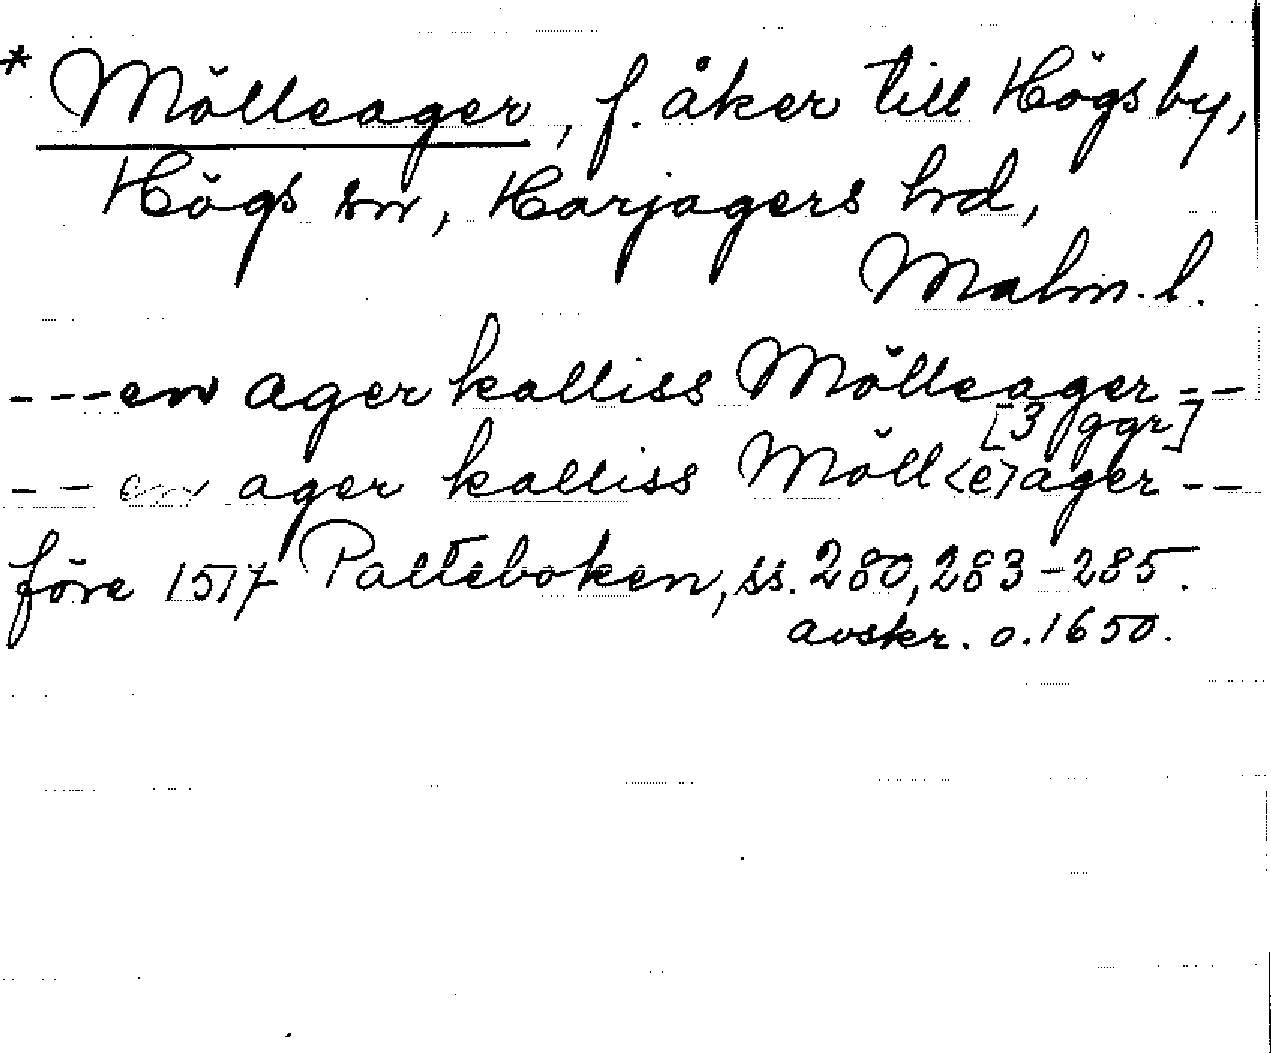 * Mölleager, f. åker till Högs by,
Högs sn, Harjagers hd,
Malm. l.
---en ager kalliss Mölleager--
[3 ggr]
-- en ager kalliss Möll<e>ager--
före 1517 Palteboken, ss. 280, 283-285.
avskr. o. 1650.